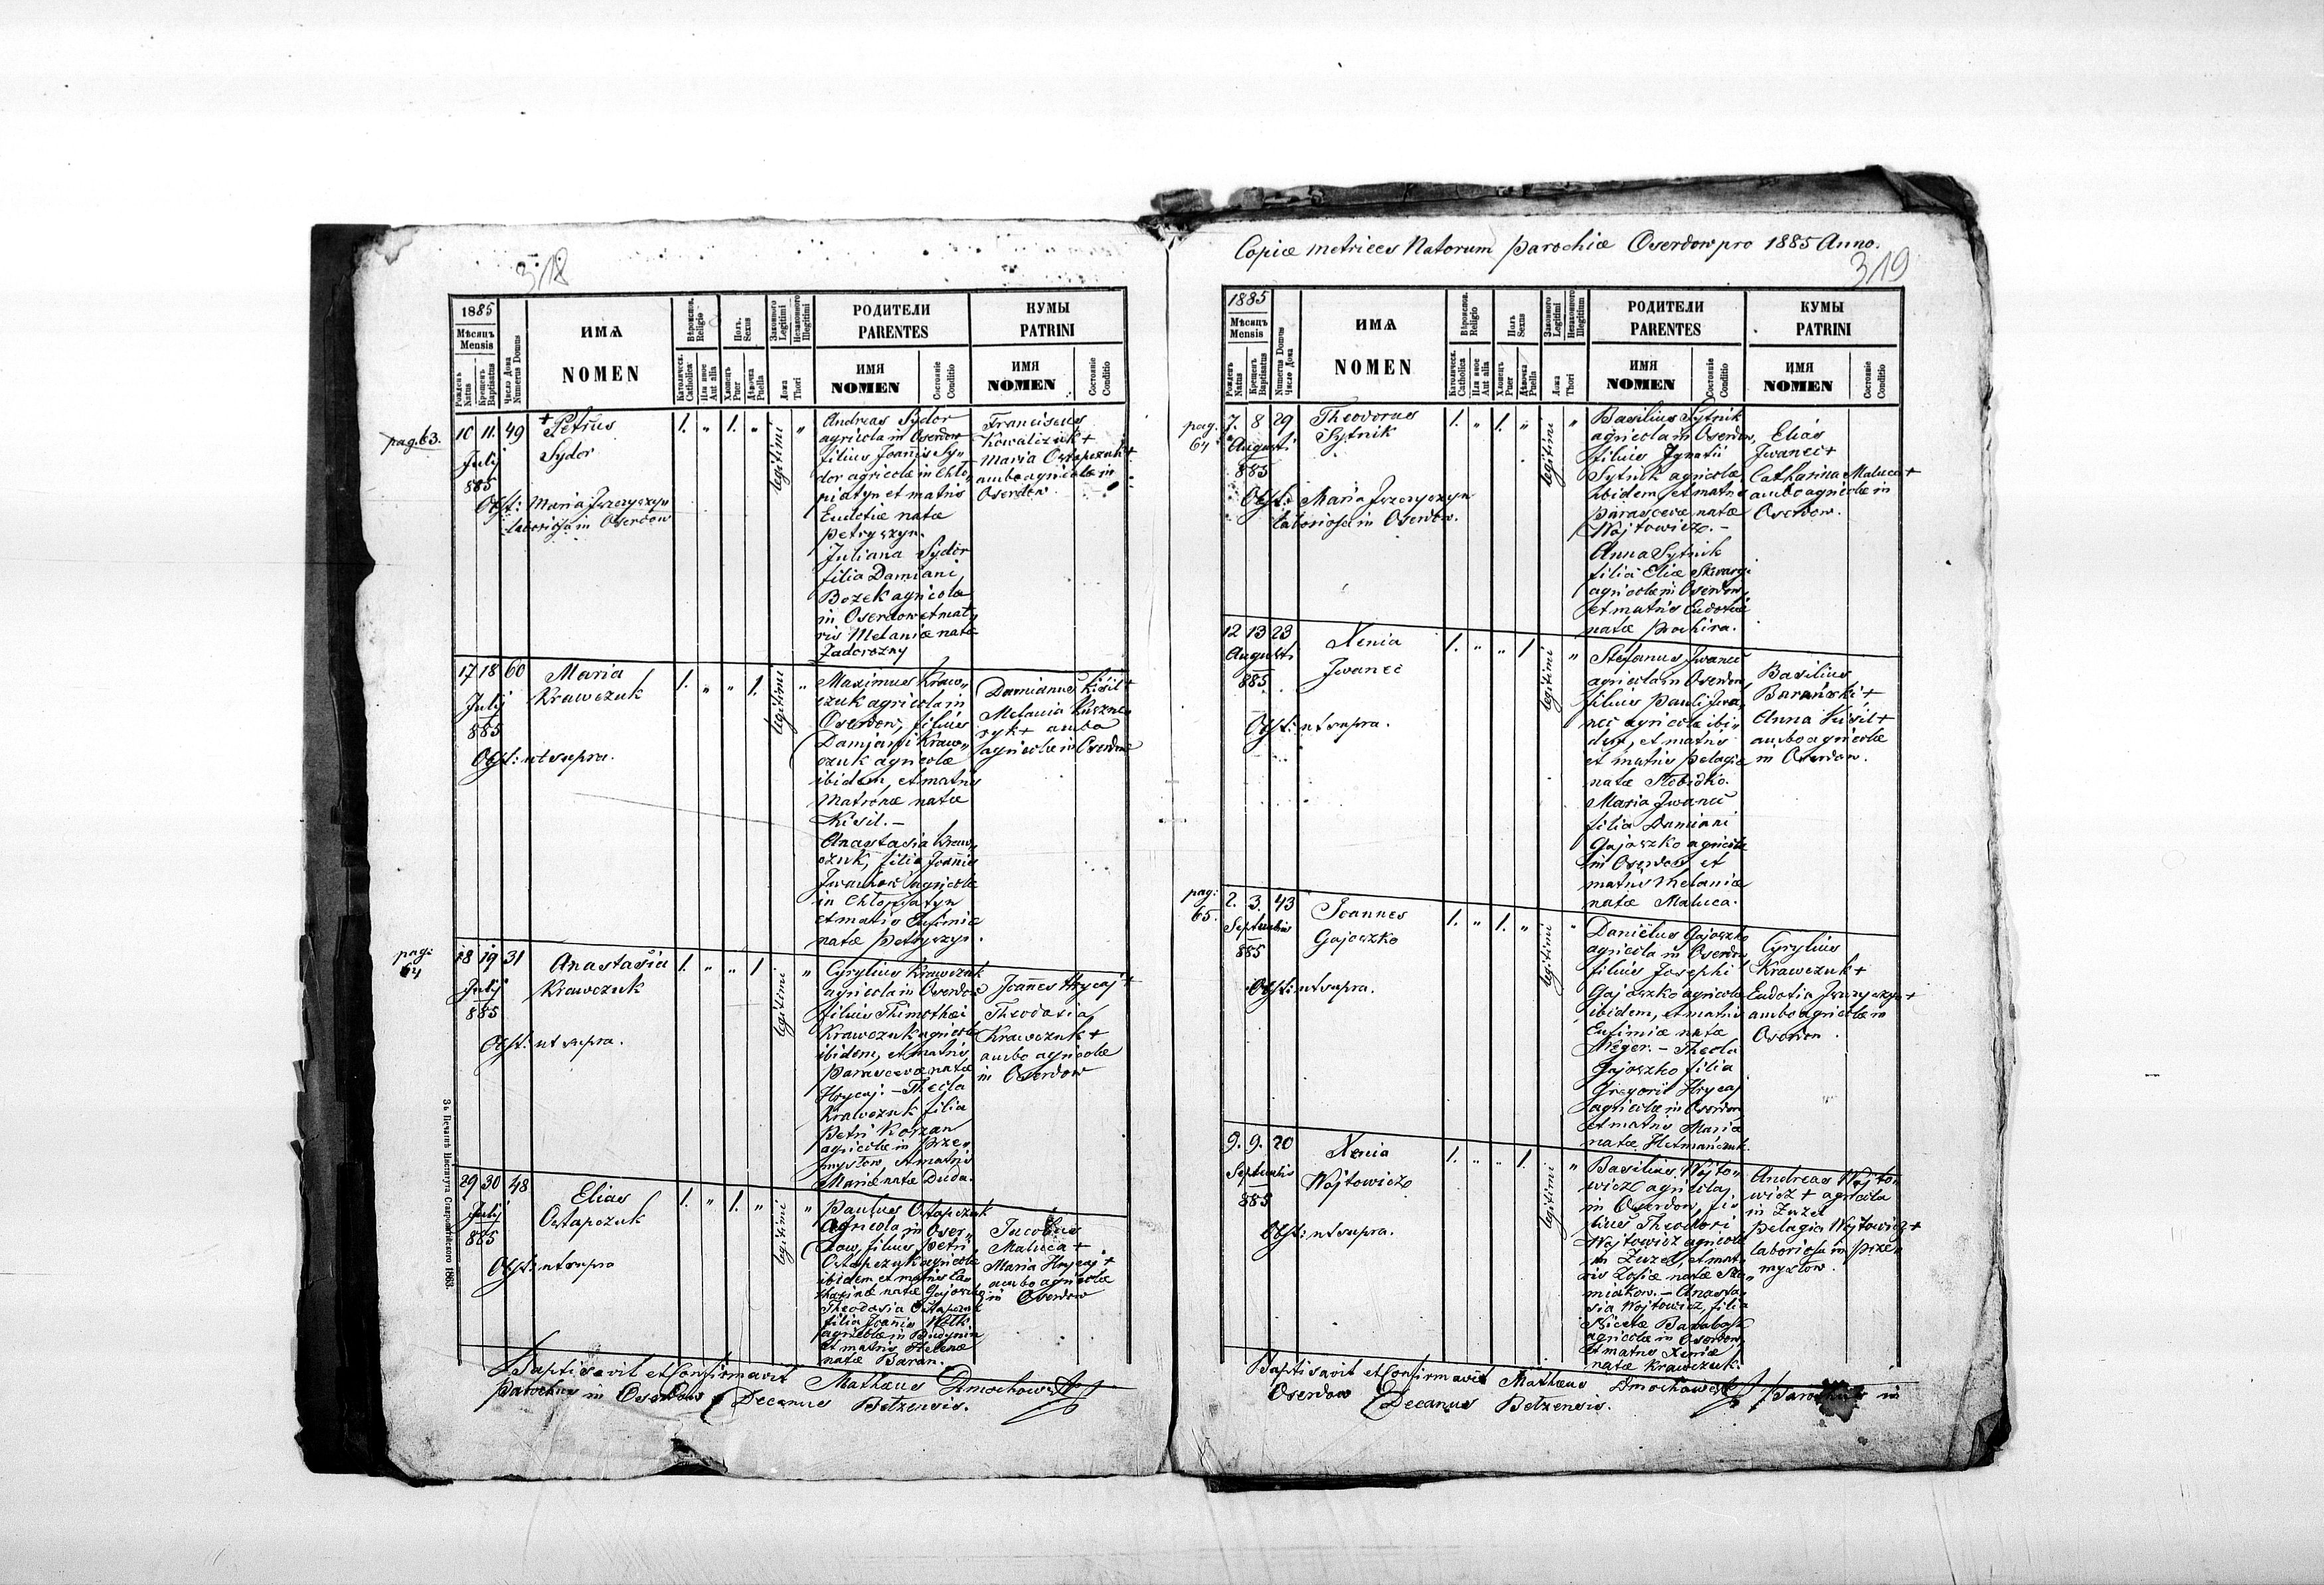 318
1885
Мѣсяць
Mensis
Рожденъ
Natus
Крещенъ
Baptisatus
Число Дома
Numerus Domus
ИМѦ
NOMEN
Вѣроиспов.
Religio
Католическ.
Catholica
Или иное
Aut alia
Полъ.
Sexus
Хлопецъ
Puer
Дѣвочка
Puella
Законного
Legitimi
Незаконного
Illegitimi
Ложа
Thori
РОДИТЕЛИ
PARENTES
ИМЯ
NOMEN
Состояніе
Conditio
КУМЫ
PATRINI
ИМЯ
NOMEN
Состояніе
Conditio
pag. 63.
10 11. 49
Julij
885
+ Petrus
Sydor
Obst: Maria Iwczyszyn
laboriosa in Oserdow
1. " 1. "
legitimi "
Andreas Sydor
agricola in Oserdow
filius Joannis Sy"
dor agricolæ in Chło"
piatyn et matris
Eudotiæ natæ
Petryszyn.
Juliana Sydor
filia Damiani
Bożek agricolæ
in Oserdow et mat"
ris Melaniæ natæ
Zadorozny
Franciscus
Kowalczuk +
Maria Ostapczuk +
ambo agricolæ in
Oserdow
17 18 60
Julij
885
Maria
Krawczuk
Obst: ut supra.
1. " " 1.
legitimi "
Maximus Kraw"
czuk agricola in
Oserdow, filius
Damjani Kraw"
czuk agricolæ
ibidem, et matris
Matronæ natæ
Kisil. —
Anastasia Kraw"
czuk, filia Joannis
agricolæ
in Chłopiatyn
et matris Eufimiæ
natæ Petryszyn.
Damianus Kisil +
Melania
ryk + ambo
agricolæ in Oserdow
pag:
64
18 19 31
Julij
885
Anastasia
Krawczuk
Obst: ut supra.
1. " " 1
legitimi "
Cyrylius Krawczuk
agricola in Oserdow
filius Thimothæi
Krawczuk agricolæ
ibidem, et matris
Parascevæ natæ
Hrycaj. — Thecla
Krawczuk filia
Petri Korzan
agricolæ in Prze"
mysłow et matris
Mariæ natæ Duda.
Joannes Hrycaj +
Theodosia
Krawczuk +
ambo agricolæ
in Oserdow
29 30 48
Julij
885
Elias
Ostapczuk
Obst: ut supra
1. " 1. "
legitimi "
Paulus Ostapczuk
Agricola in Oser"
dow, filius Petri
Ostapczuk agricolæ
ibidem et matris Ca"
tharinæ natæ Gajoszko
Theodosia Ostapczuk
filia Joannis Wołk
agricolæ in Budynin
et matris Helenæ
natæ Baran.
Jacobus
Maluca +
Maria Hrycaj +
ambo agricolæ
in Oserdow
Baptisavit et Confirmavit Mathæus Dmochowski
Parochus in Oserdow & Decanus Bełzensis.
Зъ Печатнѣ Института Ставропигійского 1863.
Copiæ Metrices Natorum Parochiæ Oserdow pro 1885 Anno.
319
1885
Мѣсяць
Mensis
Рожденъ
Natus
Крещенъ
Baptisatus
Numerus Domus
Число Дома
ИМѦ
NOMEN
Вѣроиспов.
Religio
Католическ.
Catholica
Или иное
Aut alia
Полъ
Sexus
Хлопецъ
Puer
Дѣвочка
Puella
Законного
Legitimi
Незаконного
Illegitimum
Ложа
Thori
РОДИТЕЛИ
PARENTES
ИМЯ
NOMEN
Состояніе
Conditio
КУМЫ
PATRINI
ИМЯ
NOMEN
Состояніе
Conditio
pag.
64
7. 8 29
Augusti
885
Theodorus
Sytnik
Obst: Maria Iwczyszyn
laboriosa in Oserdow.
1. " 1. "
legitimi "
Basilius Sytnik
agricola in Oserdow,
filius Ignatii
Sytnik agricolæ
ibidem, et matris
Parascevæ natæ
Wojtowicz. —
Anna Sytnik
filia Eliæ Skwargi
agricolæ in Oserdow,
et matris Eudotiæ
natæ Prochira.
Elias
Iwanec +
Catharina Maluca +
ambo agricolæ in
Oserdow.
12 13 23
Augusti
885
Xenia
Iwanec
Obst: ut supra.
1. " " 1
legitimi "
Stefanus Iwanec
agricola in Oserdow,
filius Pauli Iwa"
nec agricolæ ibi"
dem, et matris
et matris Pelagiæ
natæ Słobidko.
Maria Iwanec
filia Damiani
Gajoszko agricolæ
in Oserdow et
matris Melaniæ
natæ Maluca.
Basilius
Barański +
Anna Kisil +
ambo agricolæ
in Oserdow.
pag:
65.
2. 3. 43
Septembris
885
Joannes
Gajoszko
Obst: ut supra.
1. " 1. "
legitimi "
Daniëlus Gajoszko
agricola in Oserdow
filius Josephi
Gajoszko agricolæ
ibidem, et matris
Eufimiæ natæ
Weger. — Thecla
Gajoszko filia
Gregorii Hrycaj
agricolæ in Oserdow,
et matris Mariæ
natæ Hetmańczuk.
Cyrylius
Krawczuk +
Eudotia Iwczyszyn +
ambo agricolæ in
Oserdow.
9. 9. 20
Septembris
885
Xenia
Wojtowicz
Obst: ut supra.
1. " " 1.
legitimi "
Basilius Wojto"
wicz agricola
in Oserdow, fi"
lius Theodori
Wojtowicz agricolæ
in Żużel, et mat"
ris Zofiæ natæ
miakow. — Anasta"
sia Wojtowicz, filia
Nicetæ Barabasz
agricolæ in Oserdow,
et matris Xeniæ
natæ Krawczuk.
Andreas Wojto"
wicz + agricola
in Żużel
Pelagia Wojtowicz +
laboriosa in Prze"
mysłow.
Baptisavit et Confirmavit Mathæus Dmochowski Parochus in
Oserdow & Decanus Bełzensis.